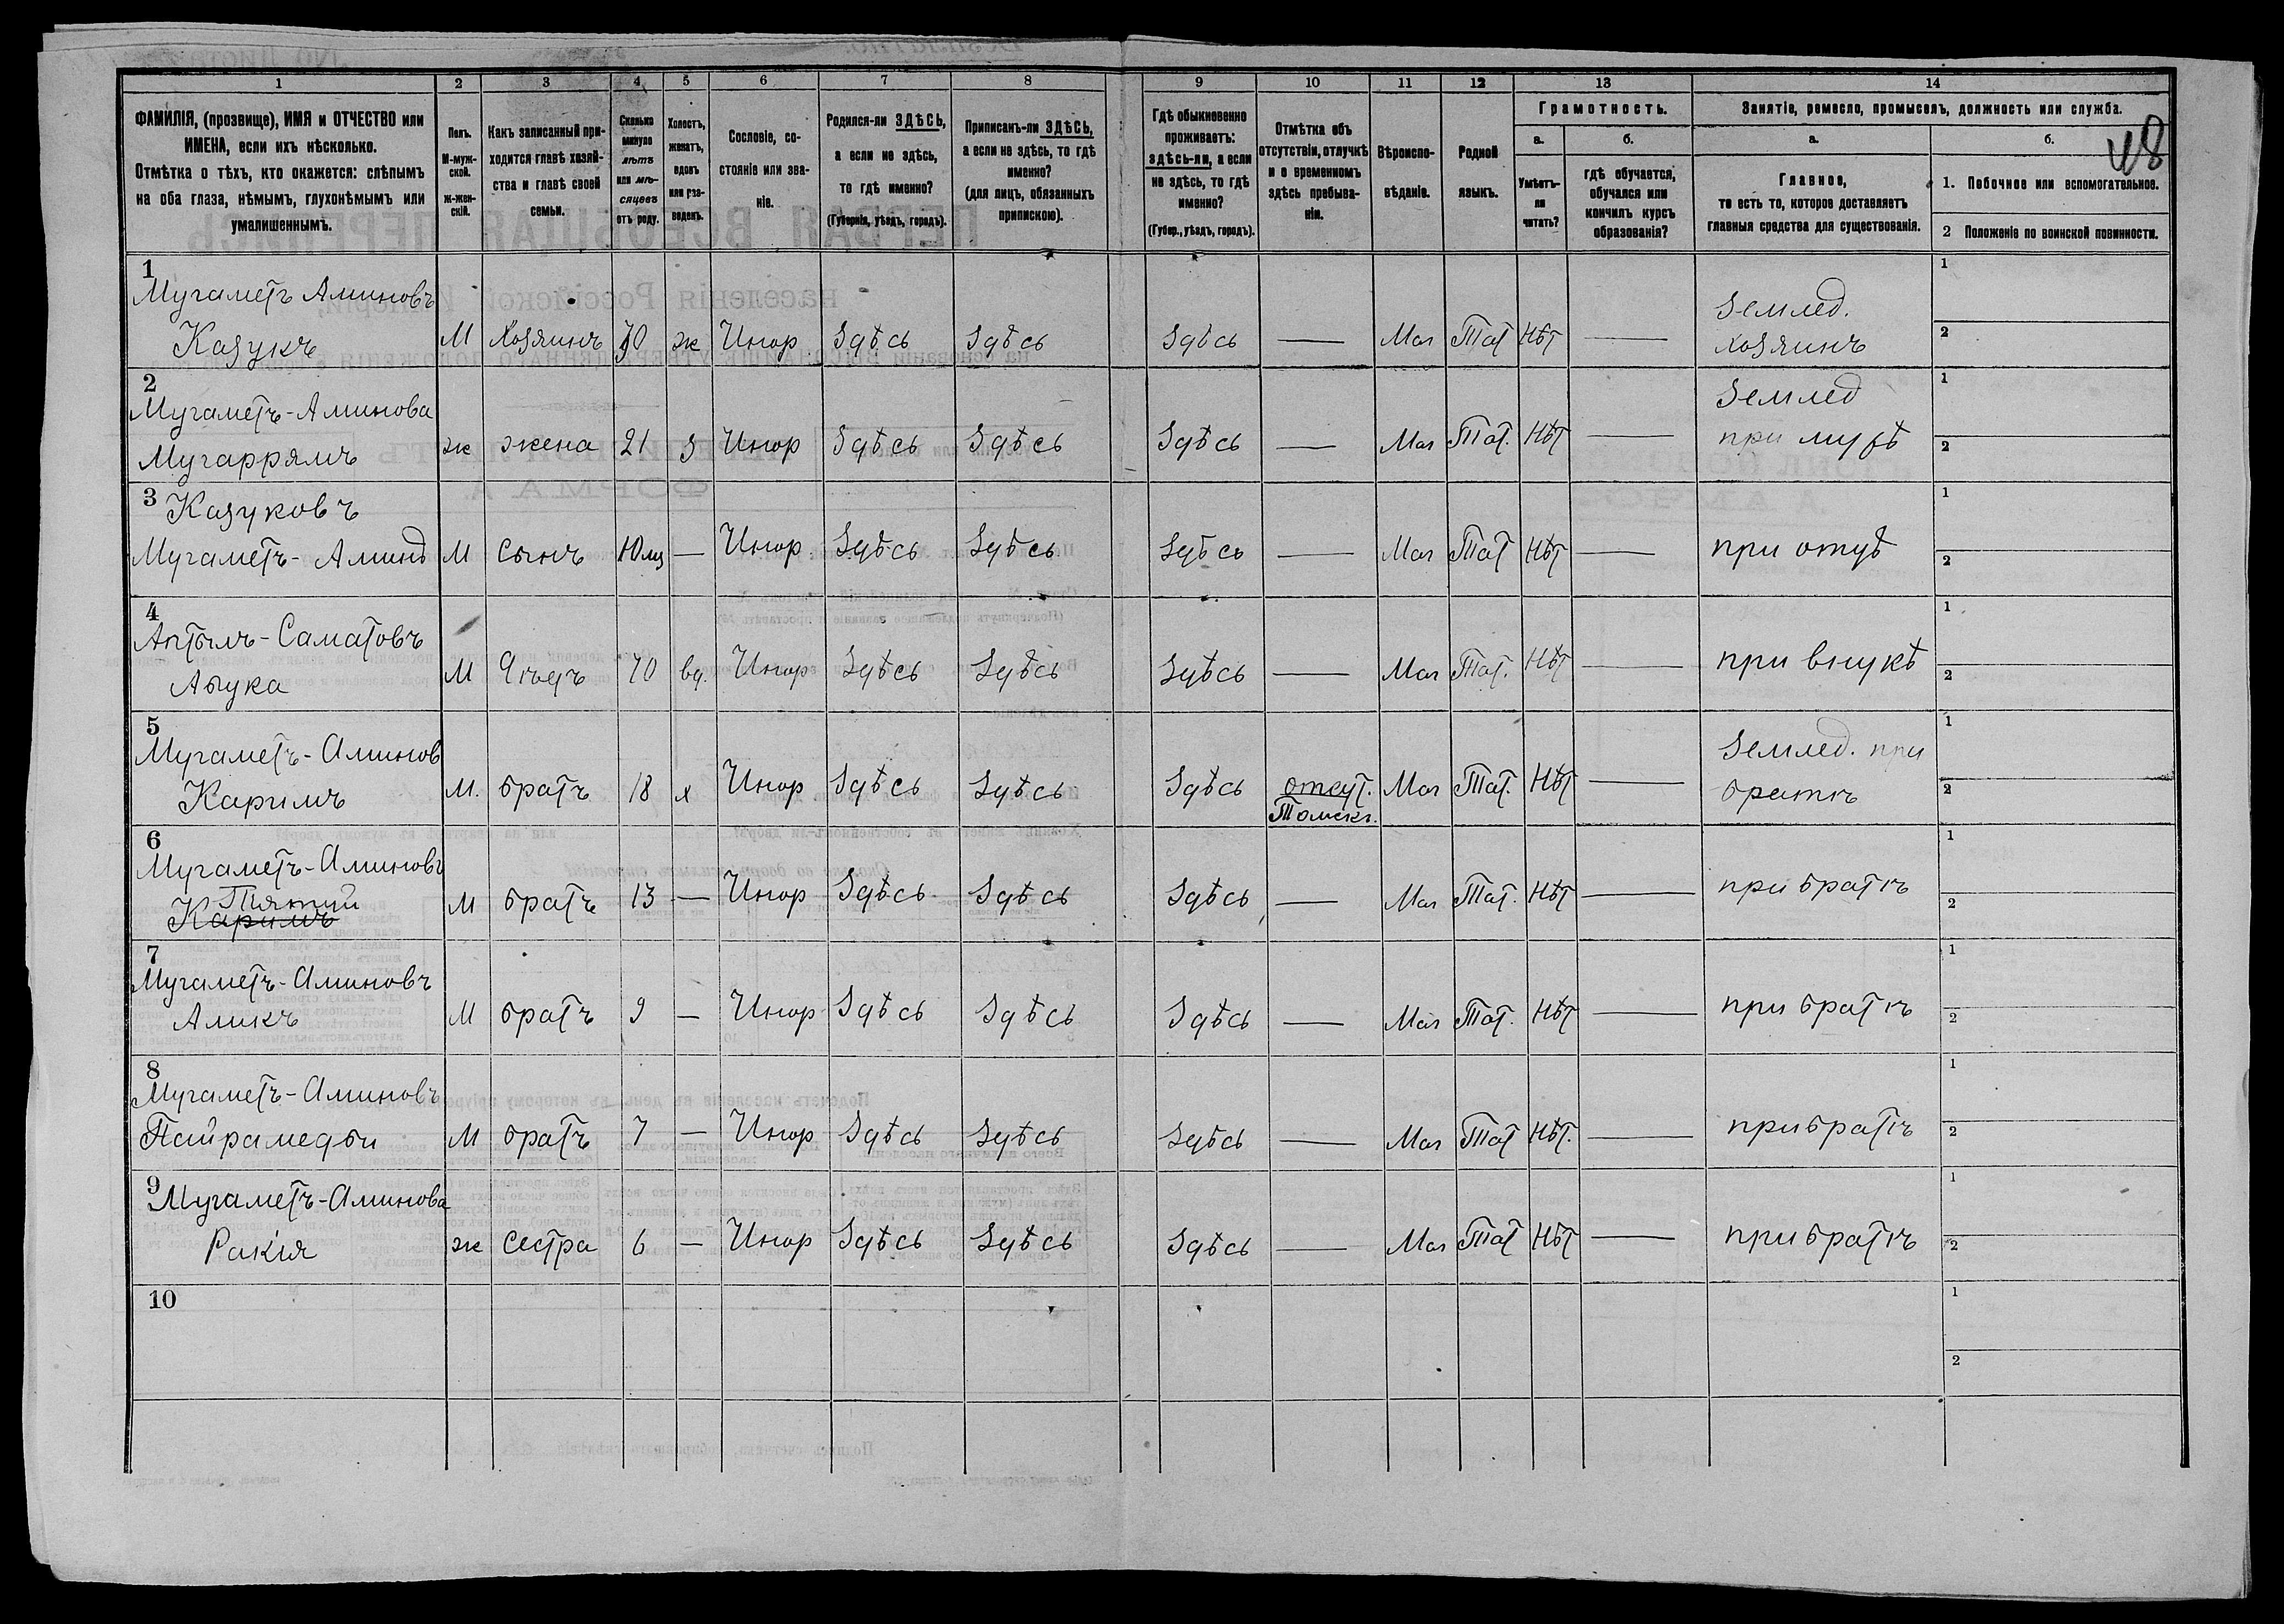 1 2 3 4 5 6 7 8 9 10 11 12 13 14
ФАМИЛІЯ, (прозвище), ИМЯ и ОТЧЕСТВО или ИМЕНА, если ихъ нѣсколько.
Отмѣтка о тѣхъ, кто окажется: слѣпымъ на оба глаза, нѣмымъ, глухонѣмымъ или умалишеннымъ.
Полъ. М-мужской. ж-женскій.
Какъ записанный приходится главѣ хозяйства и главѣ своей семьи.
Сколько минуло лѣтъ или мѣсяцевъ отъ роду.
Холостъ, женатъ, вдовъ или разведенъ.
Сословіе, состояніе или званіе.
Родился-ли ЗДѢСЬ, а если не здѣсь, то гдѣ именно? (Губернія, уѣздъ, городъ).
Приписанъ-ли ЗДѢСЬ, а если не здѣсь, то гдѣ именно? (для лицъ, обязанныхъ припискою).
Гдѣ обыкновенно проживаетъ: здѣсь-ли, а если не здѣсь, то гдѣ именно? (Губер., уѣздъ, городъ).
Отмѣтка объ отсутствіи, отлучкѣ и о временномъ здѣсь пребываніи.
Вѣроисповѣданіе.
Родной языкъ.
Грамотность.
а. Умѣетъ-ли читать?
б. гдѣ обучается, обучался или кончилъ курсъ образованія?
Занятіе, ремесло, промыселъ, должность или служба.
а. Главное, то есть то, которое доставляетъ главныя средства для существованія.
б. 48
1. Побочное или вспомогательное.
2 Положеніе по воинской повинности.
1 Мугаметъ Аминовъ
Казукъ М Хозяинъ 30 ж Инор Здѣсь Здѣсь Здѣсь — Маг Тат Нѣт — Землед. хозяинъ 1 2
2 Мугаметъ-Аминова
Мугаррямъ ж жена 21 з Инор Здѣсь Здѣсь Здѣсь — Маг Тат. Нѣт — Землед при мужѣ 1 2
3 Казуковъ
Мугаметъ-Аминъ М Сынъ 10 мц — Инор Здѣсь Здѣсь Здѣсь — Маг Тат Нѣт — при отцѣ 1 2
4 Аптылъ-Саматовъ
Абука М Дѣдъ 70 вд. Инор Здѣсь Здѣсь Здѣсь — Маг Тат. Нѣт — при внукѣ 1 2
5 Мугаметъ-Аминов
Каримъ М. братъ 18 х Инор Здѣсь Здѣсь Здѣсь отсут. Томскъ. Маг Тат. Нѣт — Землед. при братѣ 1 2
6 Мугаметъ-Аминовъ
Каримъ М братъ 13 — Инор Здѣсь Здѣсь Здѣсь — Маг Тат. Нѣт — при братѣ 1 2
7 Мугаметъ-Аминовъ
Аликъ М братъ 9 — Инор Здѣсь Здѣсь Здѣсь — Маг Тат. Нѣт — при братѣ 1 2
8 Мугаметъ-Аминовъ
М братъ 7 — Инор Здѣсь Здѣсь Здѣсь — Маг Тат Нѣт. — при братѣ 1 2
9 Мугаметъ-Аминова
Ракія ж Сестра 6 — Инор Здѣсь Здѣсь Здѣсь — Маг Тат Нѣт — при братѣ 1 2
10 1 2